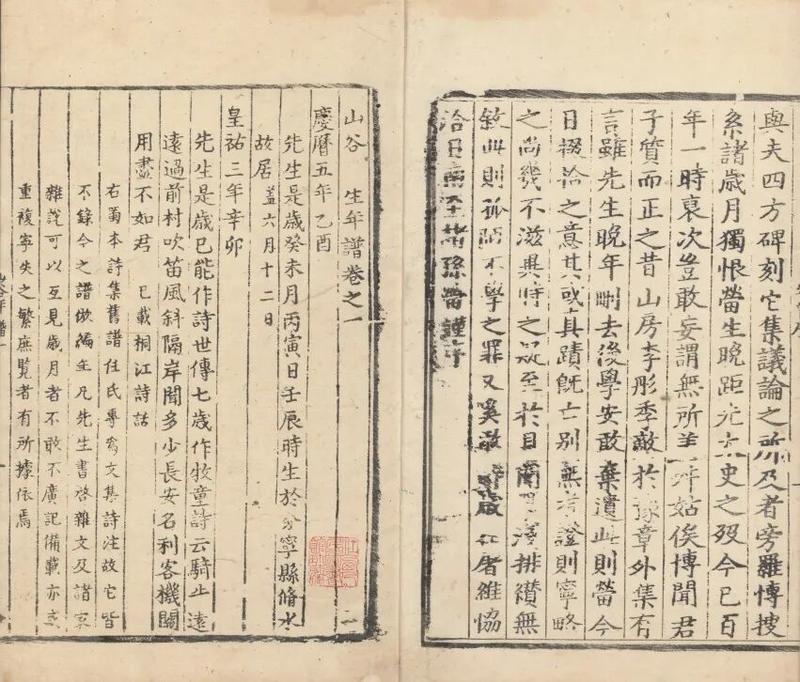 與夫四方碑刻它集議論之所及者旁羅博搜
系諸歲月獨恨㽦生晚距史之歿今已百
年一時裒次豈敢妄謂無所舛姑俟博聞君
子質而正之昔山房李彤季敵於豫章外集有
言雖先生晚年刪去後學安敢棄遺此則㽦今
日掇拾之意其或真蹟既亡別無考證則寧略
之尚幾不滋異時之疑至於目淺排纘無
敘此則孤陋不學之罪又奚敢歲在屠維協
洽日南至諸孫㽦謹序
山谷 生年譜卷之一
慶曆五年乙酉
先生是歲癸未月丙寅日壬辰時生於分寧縣脩水
故居 蓋六月十二日
皇祐三年辛卯
先生是歲已能作詩世傳七歲作牧童詩云騎止遠
遠過前村吹笛風斜隔岸聞多少長安名利客機關
用盡不如君 已載桐江詩話
右蜀本詩集舊譜任氏專為文集詩注故它皆
不錄今之譜倣編年凡先生書啓雜文及諸家
雜說可以互見歲月者不敢不廣記備載亦
重複寧失之繁庶覽者有所據依焉